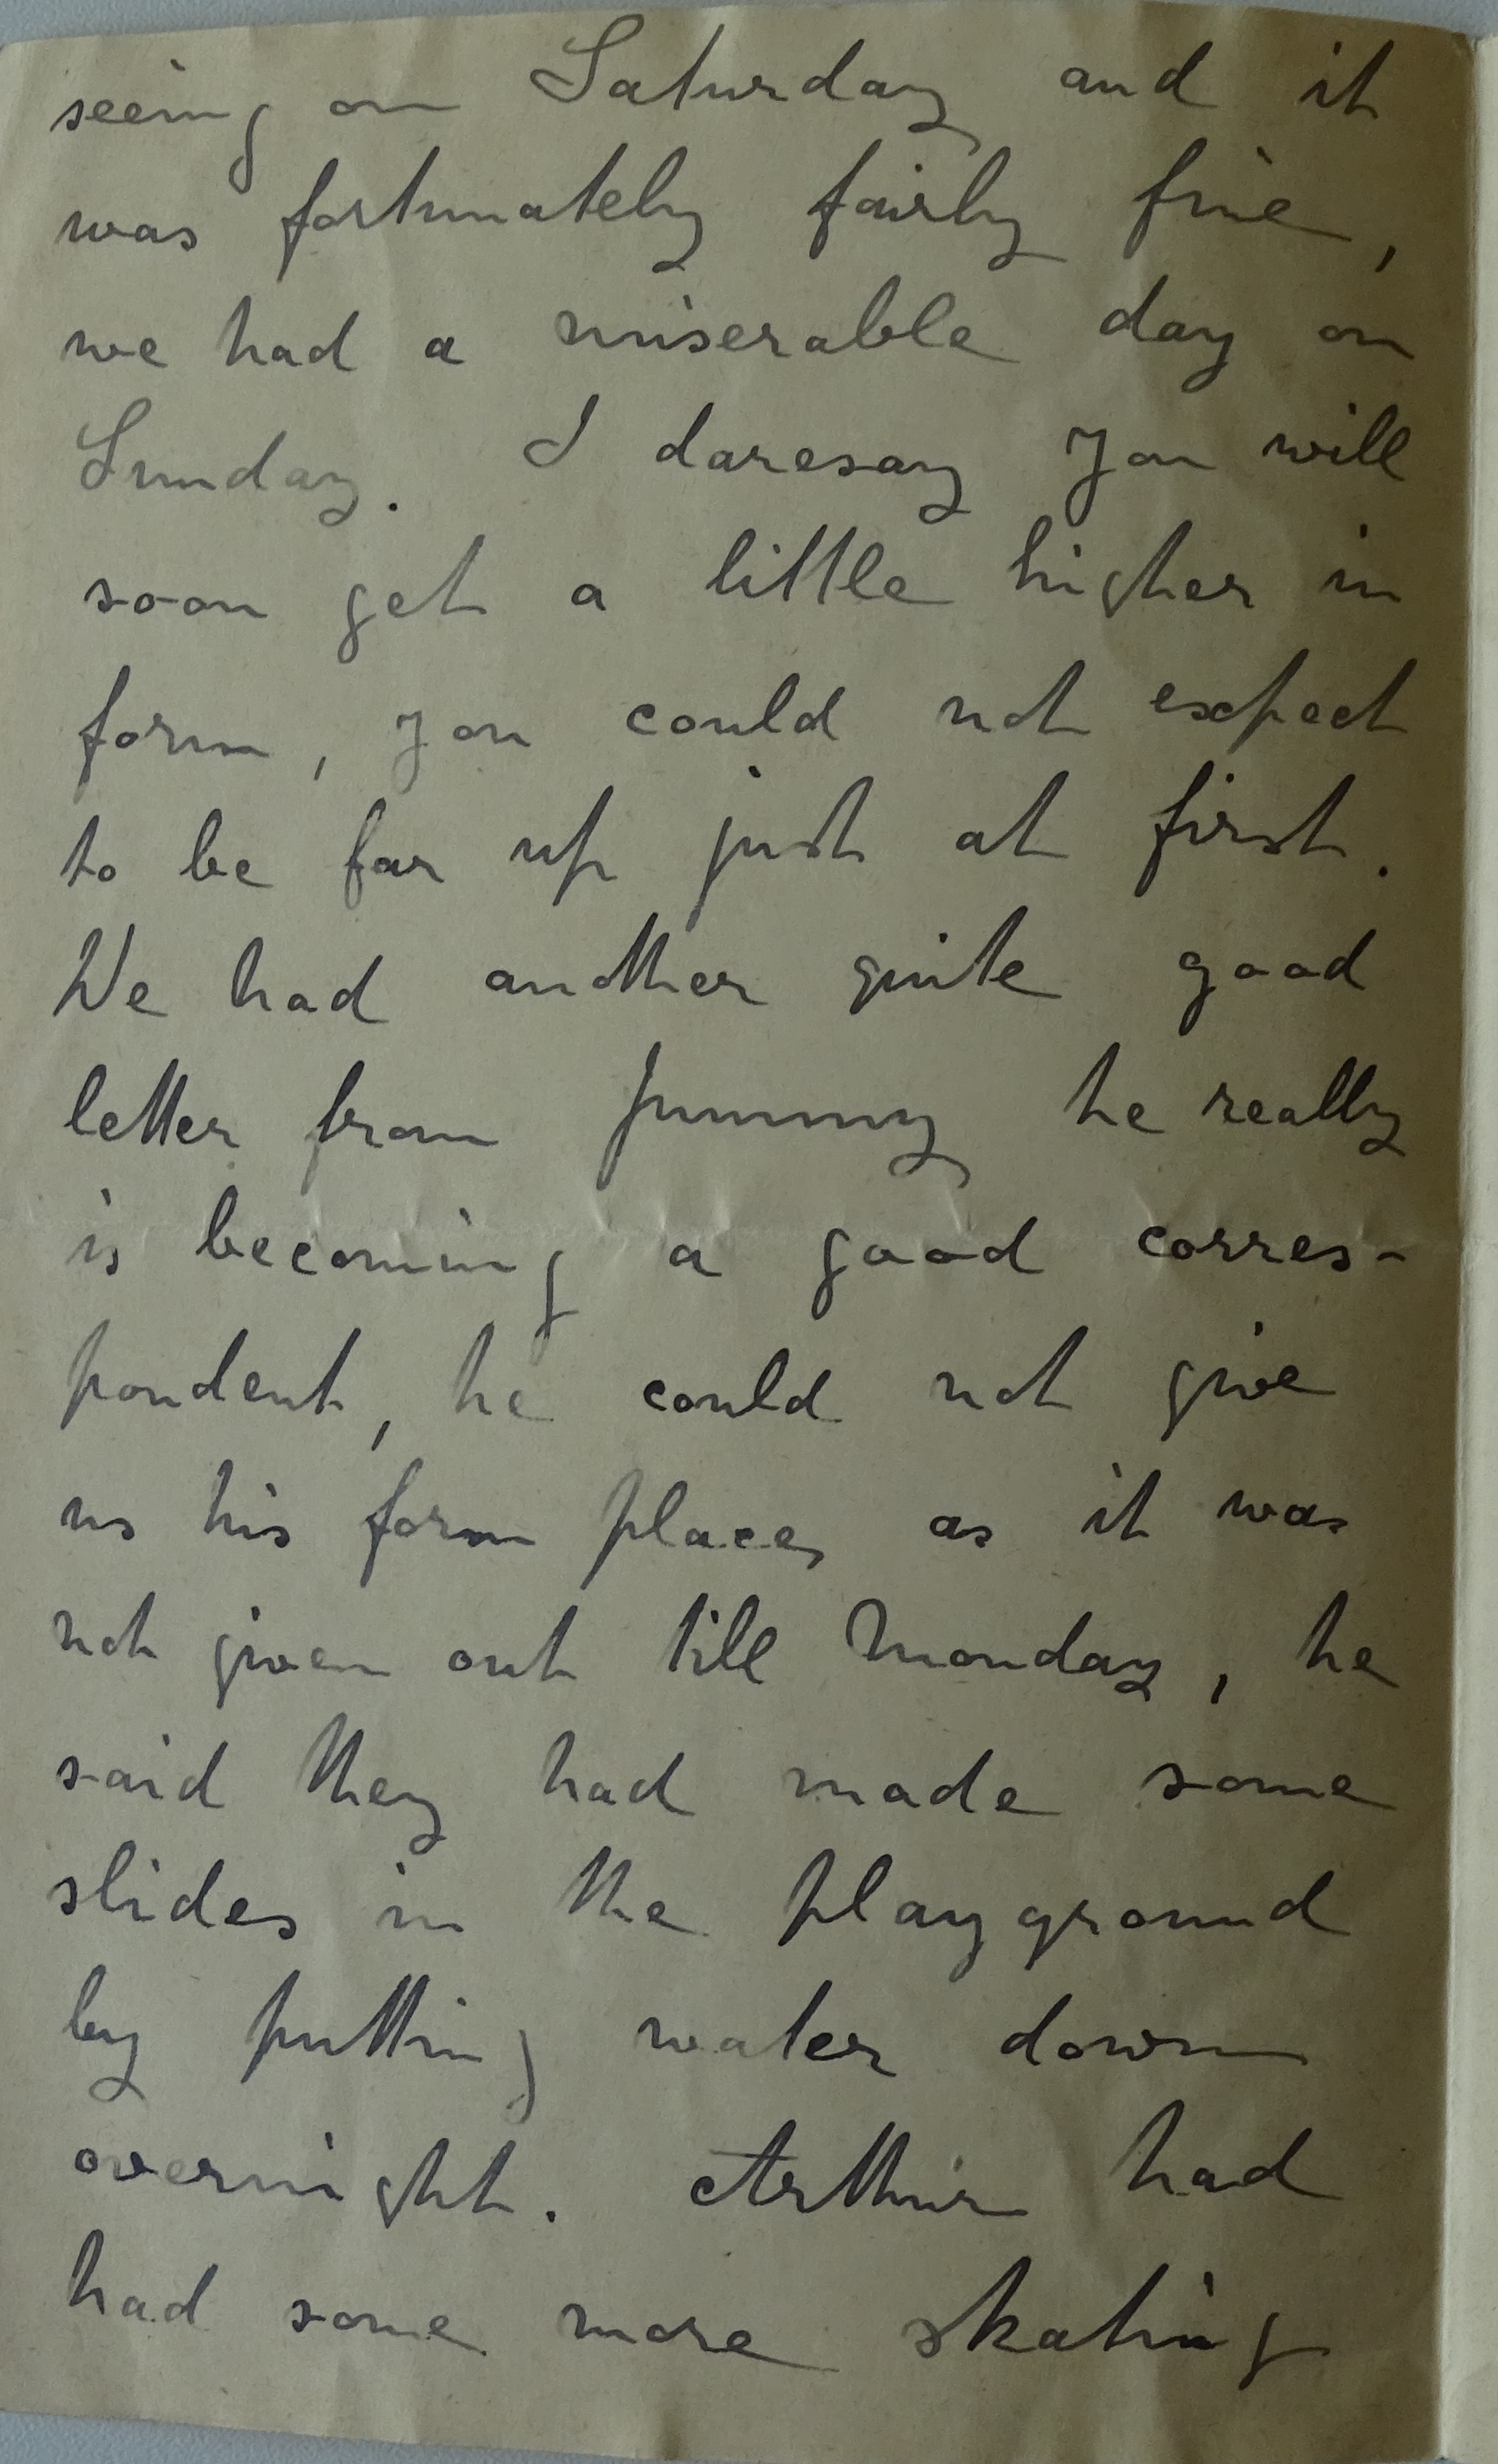 seeing on Saturday and it
was fortunately fairly fine,
we had a miserable day on
Sunday. I daresay you will
soon get a little higher in
form, you could not expect
to be far up just at first.
We had another quite good
letter from Jimmy he really
is becoming a good corres-
pondent, he could not give
us his form place, as it was
not given out till Monday, he
said they had made some
slides in the playground
by putting water down
overnight. Arthur had
had some more skating